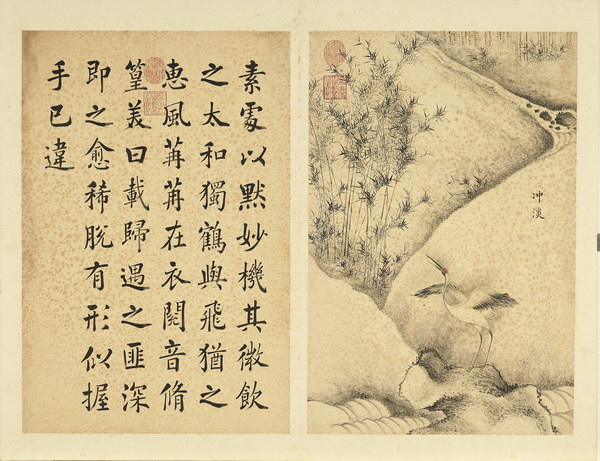 冲淡
素處以默妙機其微飲
之太和獨鶴與飛猶之
恵風苒苒在衣閱音脩
篁美曰載歸遇之匪深
即之愈稀脫有形似握
手已違